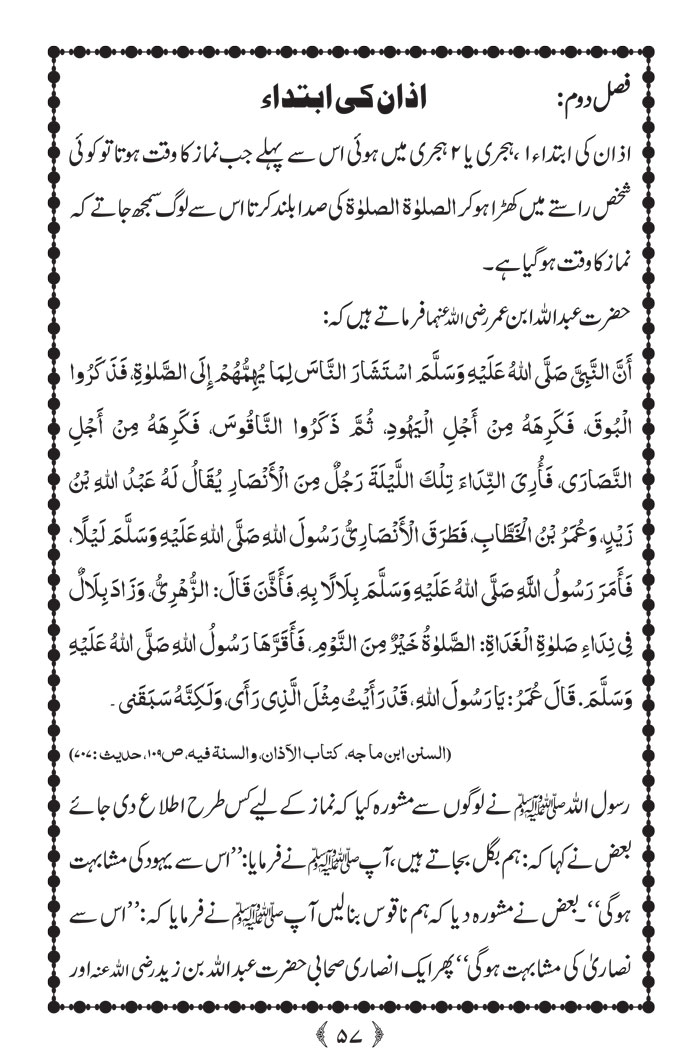 فصل دوم: اذان کی ابتداء
اذان کی ابتداء ۱، ہجری یا ۲ ہجری میں ہوئی اس سے پہلے جب نماز کا وقت ہوتا تو کوئی
شخص راستے میں کھڑا ہو کر الصلوٰۃ الصلوٰۃ کی صدا بلند کرتا اس سے لوگ سمجھ جاتے کہ
نماز کا وقت ہو گیا ہے۔
حضرت عبداللہ ابن عمر رضی اللہ عنہما فرماتے ہیں کہ:
أَنَّ النَّبِيَّ صَلَّى اللهُ عَلَيْهِ وَسَلَّمَ اسْتَشَارَ النَّاسَ لِمَا يُهِمُّهُمْ إِلَى الصَّلٰوةِ، فَذَكَرُوا
الْبُوقَ، فَكَرِهَهُ مِنْ أَجْلِ الْيَهُودِ، ثُمَّ ذَكَرُوا النَّاقُوسَ، فَكَرِهَهُ مِنْ أَجْلِ
النَّصَارَى، فَأُرِيَ النِّدَاءَ تِلْكَ اللَّيْلَةَ رَجُلٌ مِنَ الْأَنْصَارِ يُقَالُ لَهُ عَبْدُ اللهِ بْنُ
زَيْدٍ، وَعُمَرُ بْنُ الْخَطَّابِ، فَطَرَقَ الْأَنْصَارِيُّ رَسُولَ اللهِ صَلَّى اللهِ عَلَيْهِ وَسَلَّمَ لَيْلًا،
فَأَمَرَ رَسُولُ اللَّهِ صَلَّى اللهُ عَلَيْهِ وَسَلَّمَ بِلَالًا بِهِ، فَأَذَّنَ قَالَ: الزُّهْرِيُّ، وَزَادَ بِلَالٌ
فِي نِدَاءِ صَلٰوةِ الْغَدَاةِ: الصَّلٰوةُ خَيْرٌ مِنَ النَّوْمِ، فَأَقَرَّهَا رَسُولُ اللهِ صَلَّى اللهُ عَلَيْهِ
وَسَلَّمَ. قَالَ عُمَرُ: يَا رَسُولَ اللهِ، قَدْ رَأَيْتُ مِثْلَ الَّذِي رَأَى، وَلَكِنَّهُ سَبَقَنِي۔
(السنن ابن ماجه، كتاب الآذان، والسنة فيه، ص۱۰۹، حدیث: ۷۰۷)
رسول اللہ ﷺ نے لوگوں سے مشورہ کیا کہ نماز کے لیے کس طرح اطلاع دی جائے
بعض نے کہا کہ: ہم بگل بجاتے ہیں، آپ ﷺ نے فرمایا: ’’اس سے یہود کی مشابہت
ہوگی‘‘۔ بعض نے مشورہ دیا کہ ہم ناقوس بنا لیں آپ ﷺ نے فرمایا کہ: ’’اس سے
نصاریٰ کی مشابہت ہوگی‘‘ پھر ایک انصاری صحابی حضرت عبداللہ بن زید رضی اللہ عنہ اور
۵۷